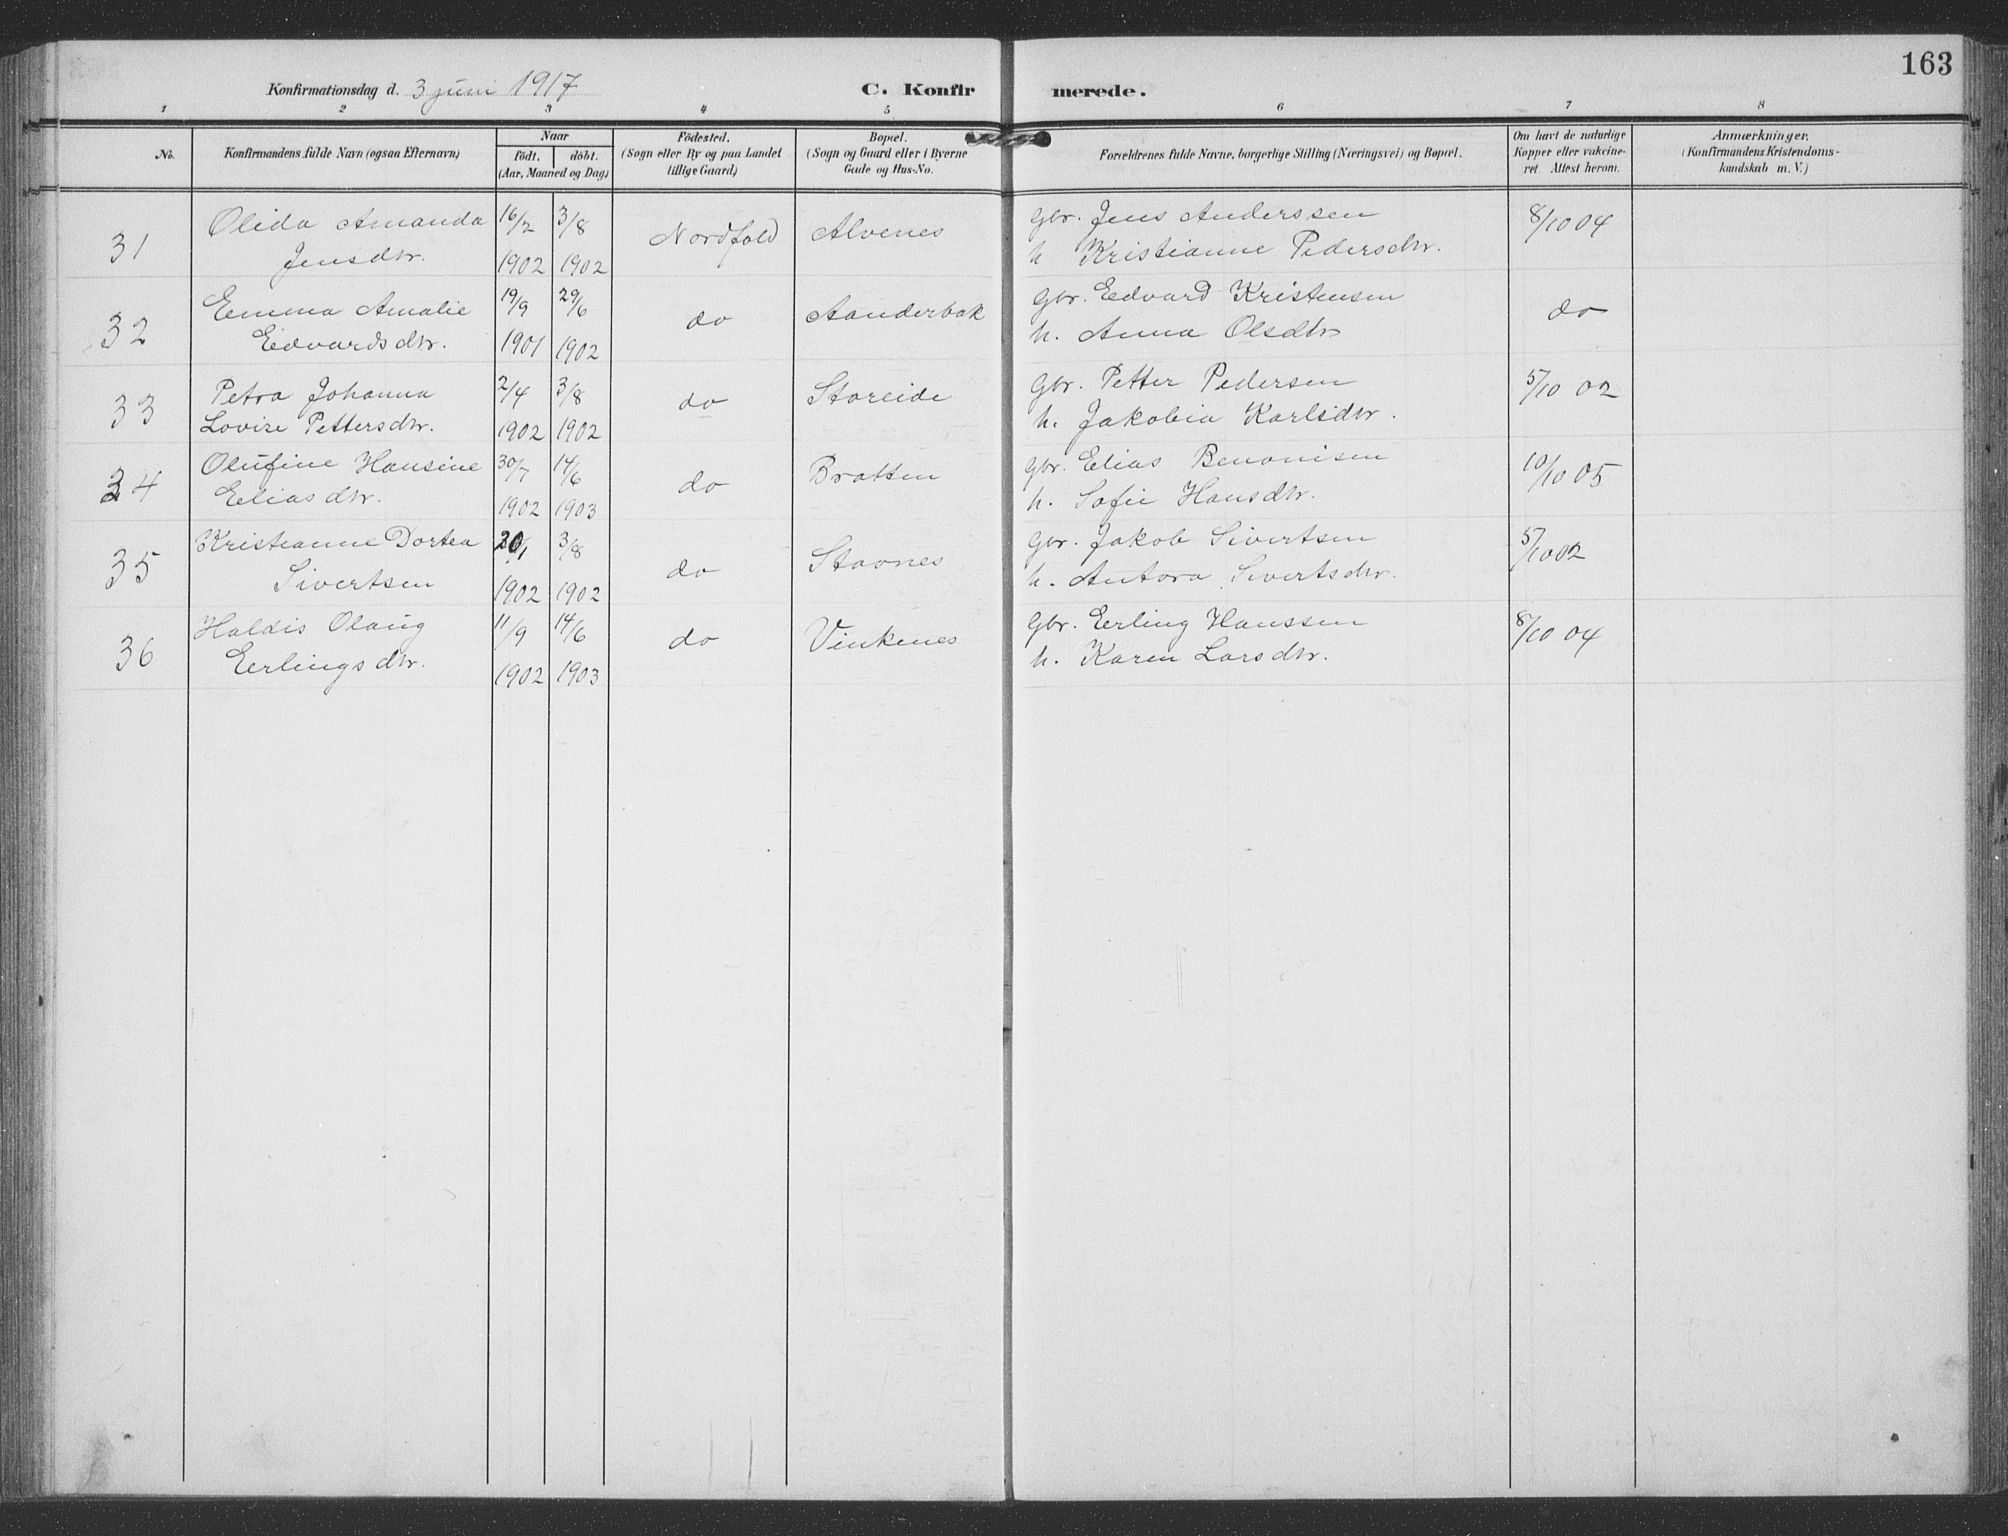 163
Konfirmationsdag d. 3 juni 1917
C. Konfirmerede.
1 2 3 4 5 6 7 8
No.
Konfirmandens fulde Navn (ogsaa Efternavn)
Naar
födt. döbt.
(Aar, Maaned og Dag)
Födested.
(Sogn eller By og paa Landet
tillige Gaard)
Bopæl.
(Sogn og Gaard eller i Byerne
Gade og Hus-No.
Forældrenes fulde Navne, borgerlige Stilling (Næringsvei) og Bopæl.
Om havt de naturlige
Kopper eller vakcine-
ret. Attest herom.
Anmærkninger.
(Konfirmandens Kristendoms-
kundskab m. V.)
31 Olida Amanda Jensdtr. 16/2 1902 3/8 1902 Nordfold Alvenes
Gbr. Jens Anderssen
h Kristianne Pedersdtr. 8/10 04
32 Emma Amalie Edvardsdtr. 19/9 1901 29/6 1902 do Aanderbak
Gbr. Edvard Kristensen
h. Anna Olsdtr do
33 Petra Johanna Lovise Pettersdtr. 2/4 1902 3/8 1902 do Storeide
Gbr. Petter Pedersen
h. Jakobia Karlsdtr. 5/10 02
34 Olufine Hansine Eliasdtr. 30/7 1902 14/6 1903 do Bratten
Gbr. Elias Benonisen
h. Sofie Hansdtr. 10/10 05
35 Kristianne Dortea Sivertsen 20/1 1902 3/8 1902 do Stavnes
Gbr. Jakob Sivertsen
h. Antora Sivertsdtr. 5/10 02
36 Haldis Olaug Erlingsdtr. 11/9 1902 14/6 1903 do Vinkenes
Gbr. Erling Hanssen
h. Karen Larsdtr. 8/10 04